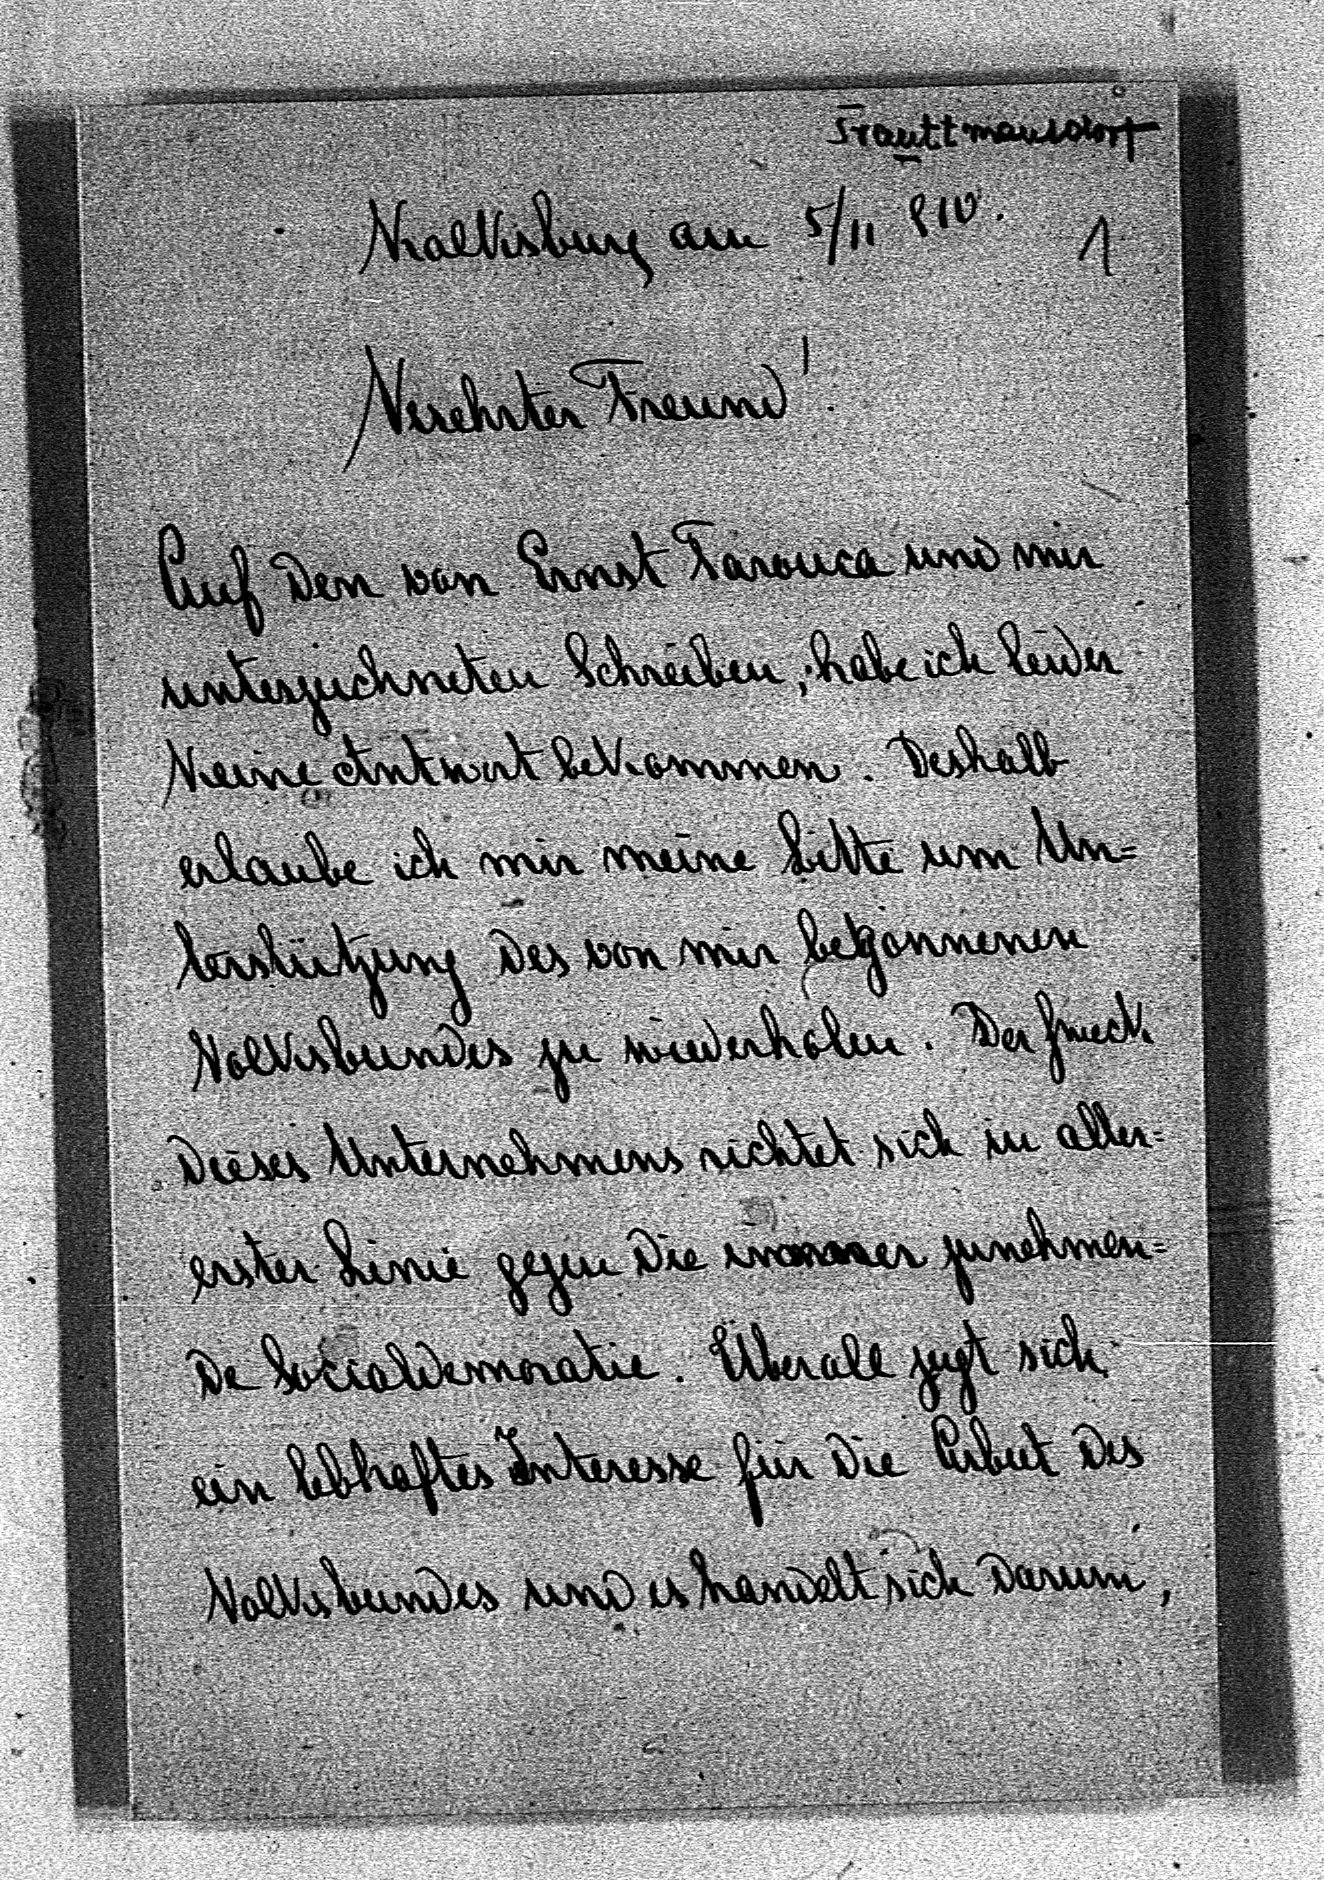 Trauttmansdorf
am 5/11 910.
1
Verehrter Freund!
Auf den von Ernst Tarouca und mir
unterzeichneten Schreiben, habe ich leider
keine Antwort bekommen. Deshalb
erlaube ich mir meine Bitte um Un=
terstützung des von mir begonnenen
Volksbundes zu wiederholen. Der Zweck
dieses Unternehmens richtet sich in aller=
erster Linie gegen die immer zunehmen=
de Socialdemoratie. Überall zeigt sich
ein lebhaftes Interesse für die Arbeit des
Volksbundes und es handelt sich darum,